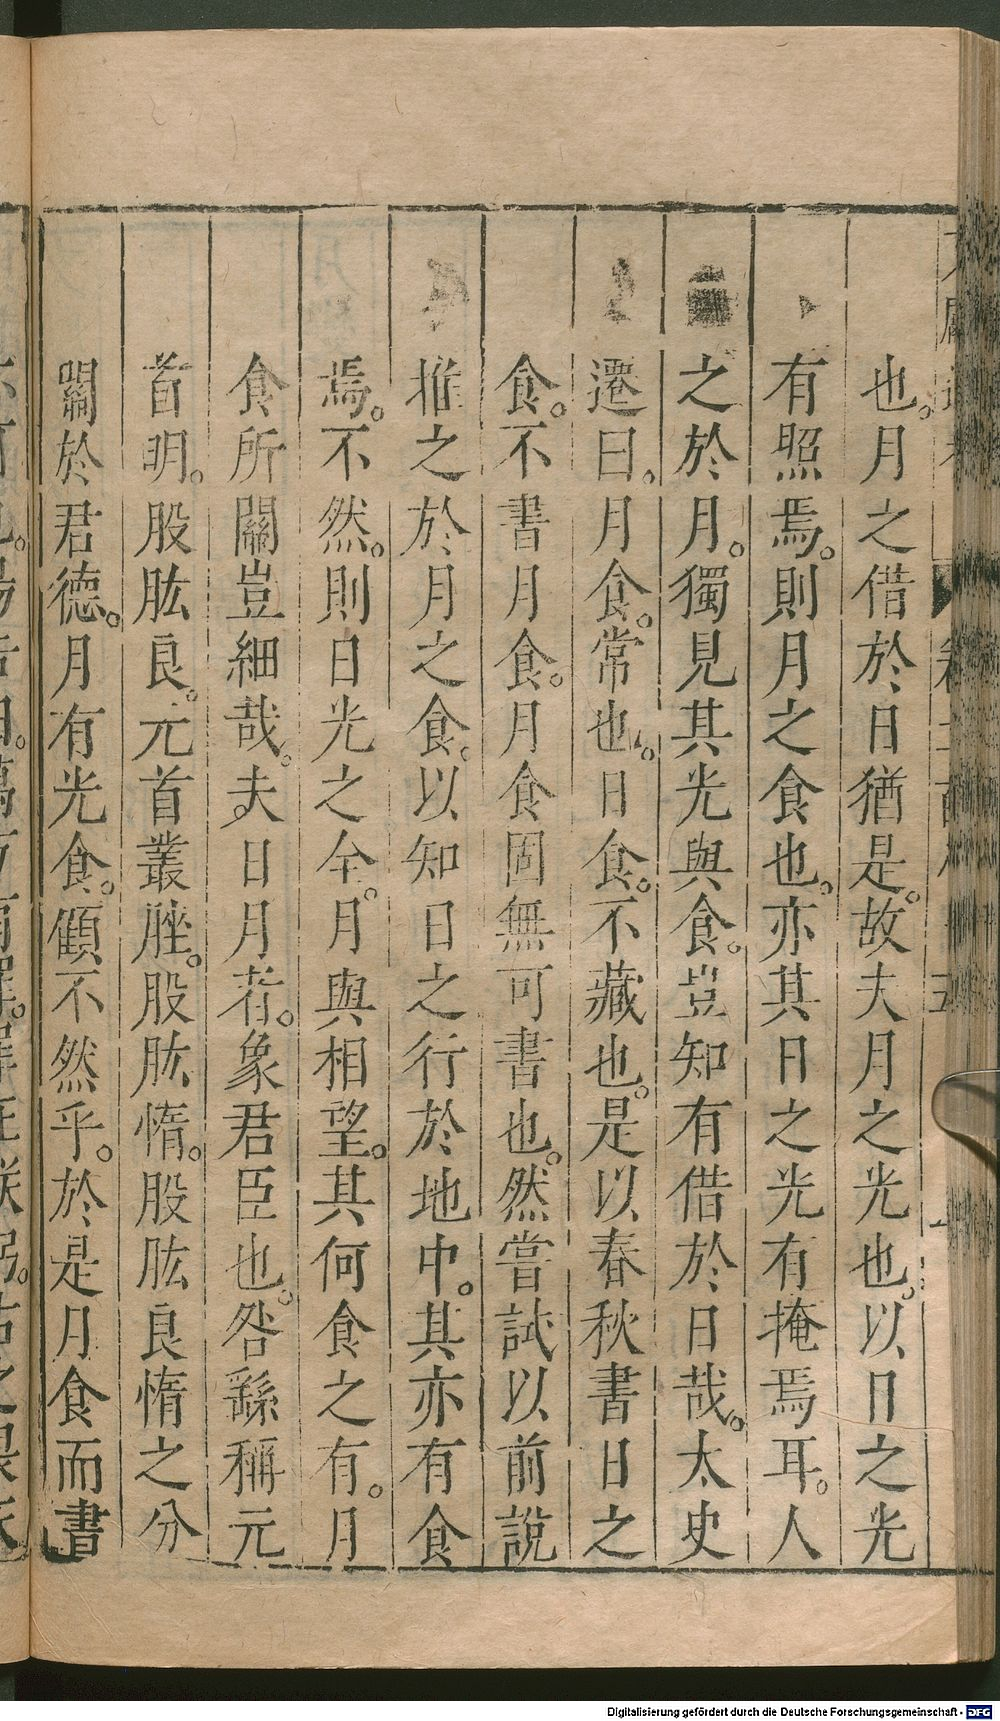 也。月之借於日猶是。故夫月之光也。以日之光
有照焉。則月之食也。亦其日之光有掩焉耳。人
之於月。獨見其光與食。豈知有借於日哉。太史
遷曰。月食。常也。日食。不藏也。是以春秋書日之
食。不書月食。月食固無可書也。然嘗試以前說
推之於月之食。以知日之行於地中。其亦有食
焉。不然。則日光之全。月與相望。其何食之有。月
食所關豈細哉。夫日月者。象君臣也。咎繇稱元
首明。股肱良。元首叢脞。股肱惰。股肱良惰之分
關於君德。月有光食。顧不然乎。於是月食而書
Digitalisierung gefördert durch die Deutsche Forschungsgemeinschaft - DFG